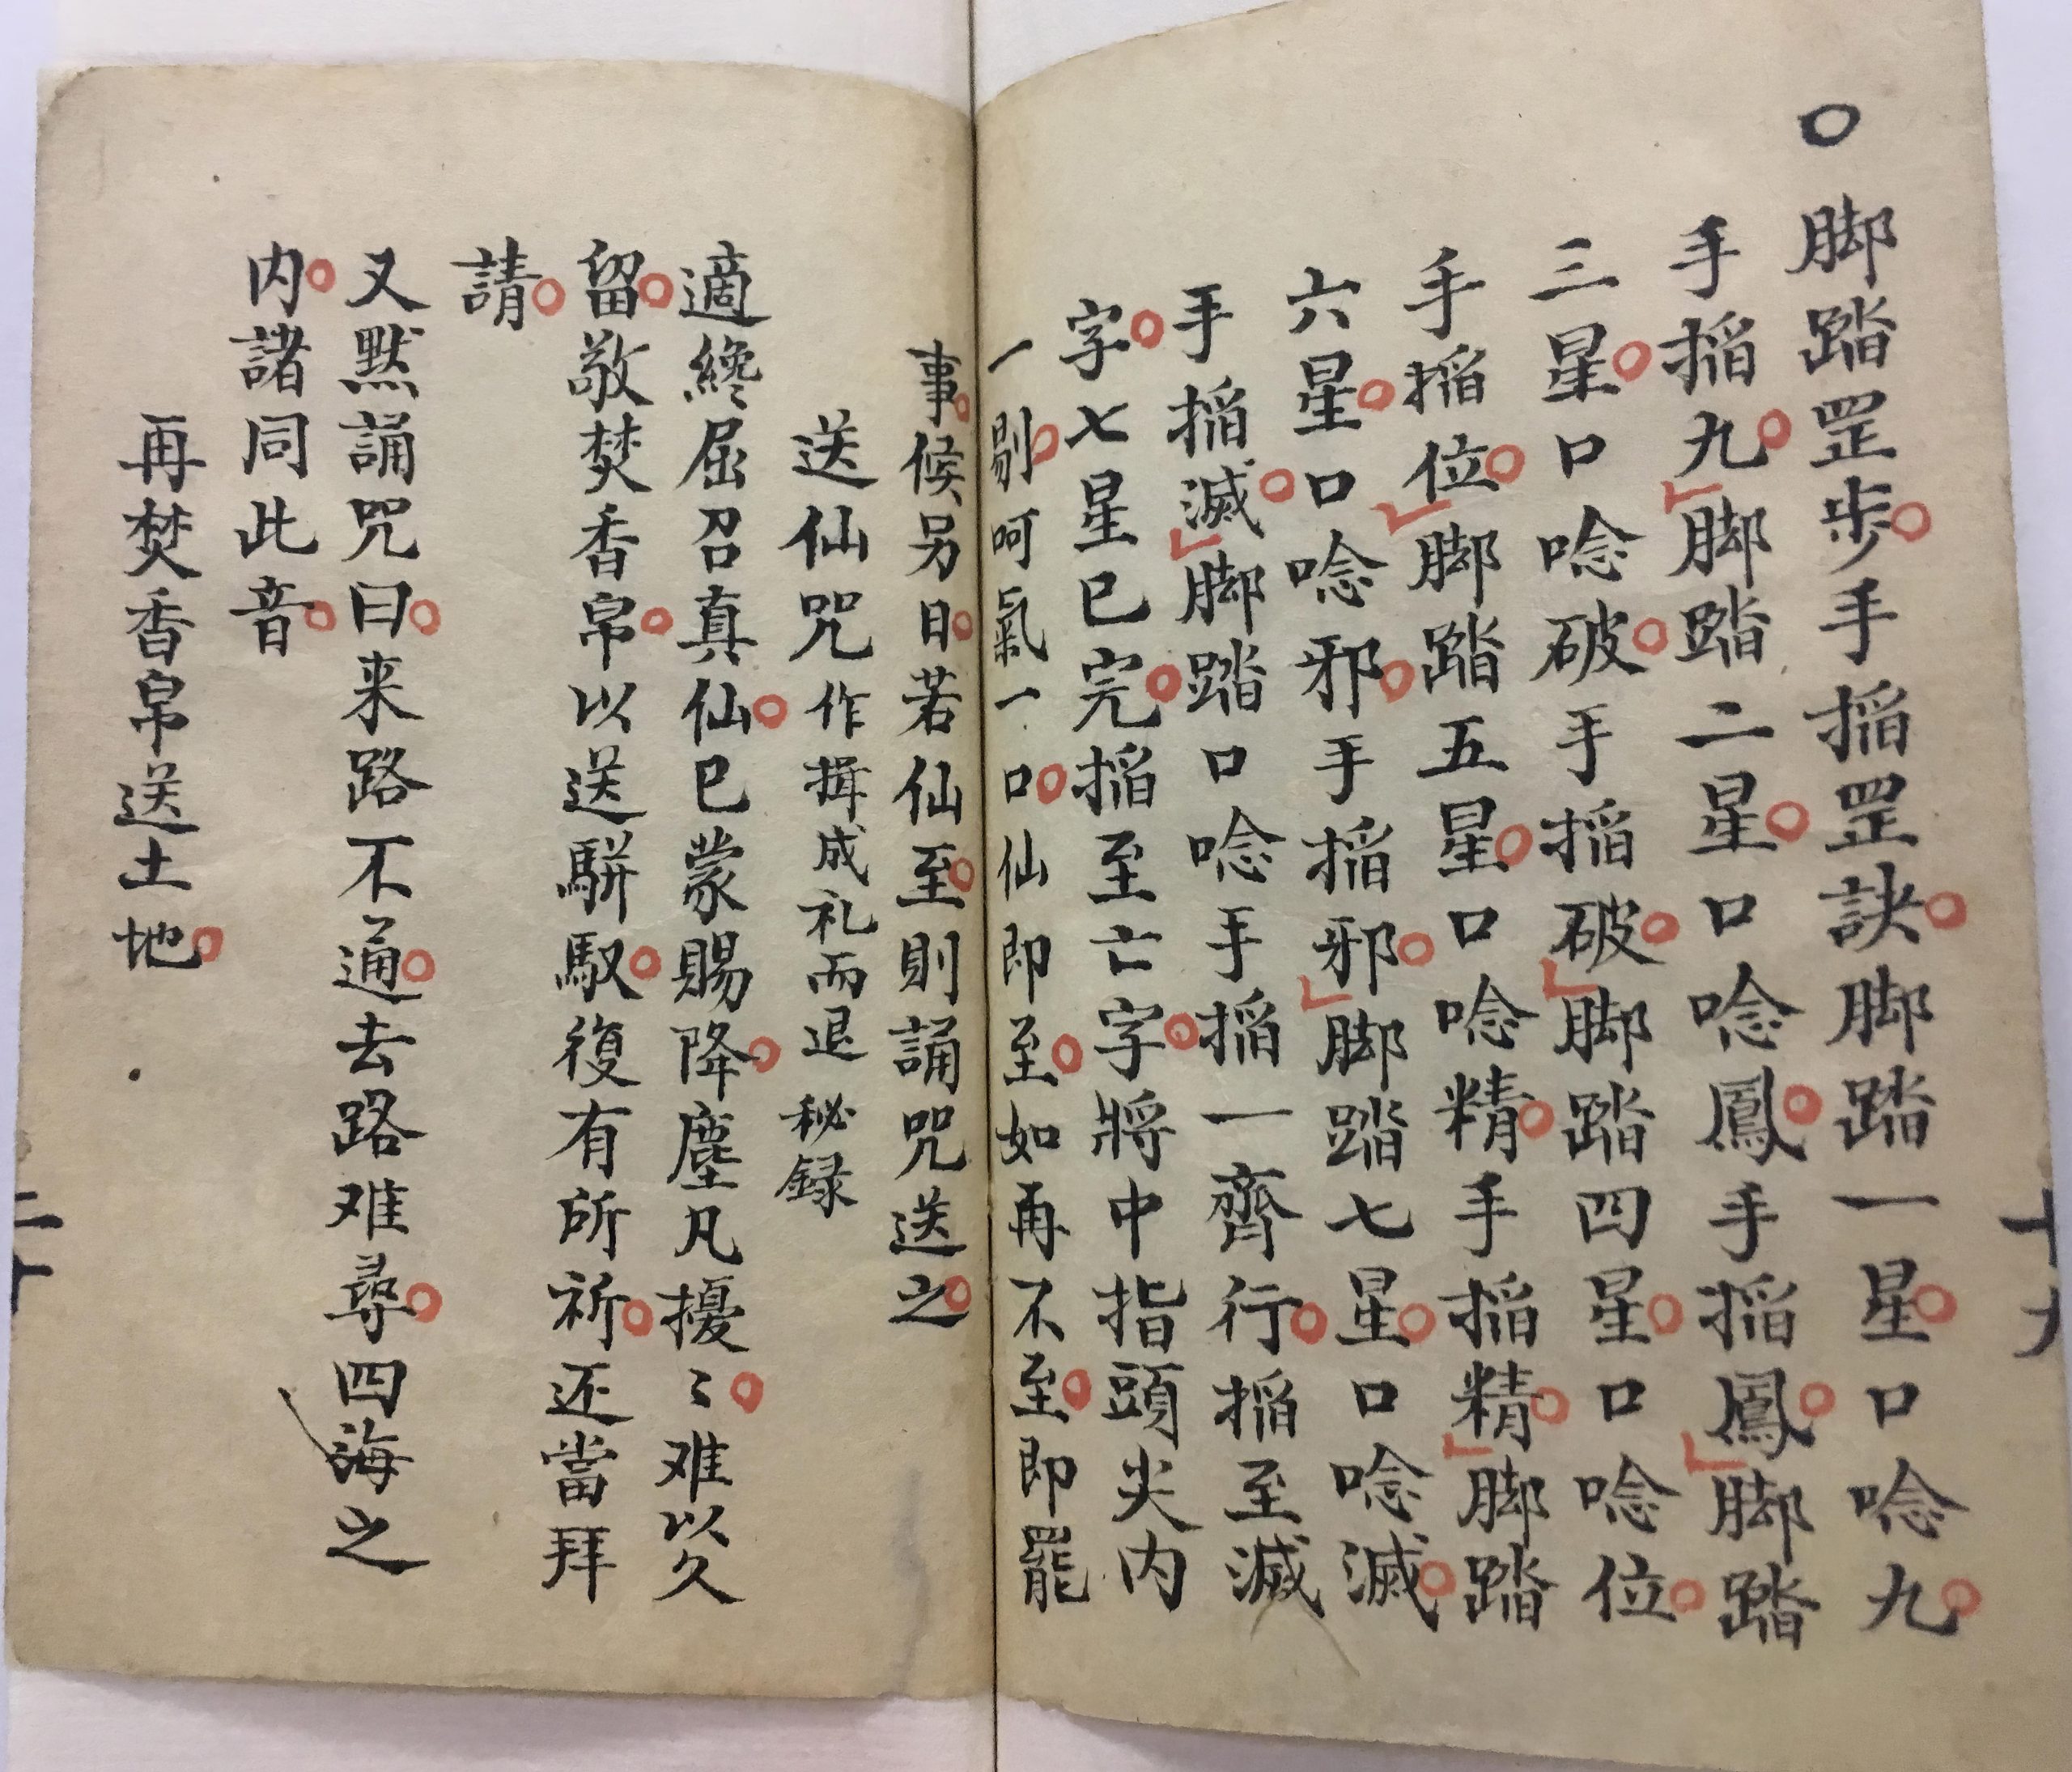 ○脚踏罡步。手搯罡訣。脚踏一星。口唸九。
手搯九。脚踏二星。口唸鳳。手搯鳳。脚踏
三星。口唸破。手搯破。脚踏四星。口唸位。
手搯位。脚踏五星。口唸精。手搯精。脚踏
六星。口唸邪。手搯邪。脚踏七星。口唸滅。
手搯滅。脚踏口唸手搯一齊行。搯至滅
字。七星已完。搯至亡字。將中指頭尖内
一剔。呵氣一口。仙即至。如再不至。即罷
十九
事。候另日。若仙至。則誦咒送之。
送仙咒 作揖成礼而退 秘録
適纔屈召真仙。已蒙賜降。塵凡擾〻。难以久
留。敬焚香帛。以送駢馭。復有所祈。还當拜
請。
又默誦咒曰。来路不通。去路难尋。四海之
内。諸同此音。
再焚香帛送土地。
二十